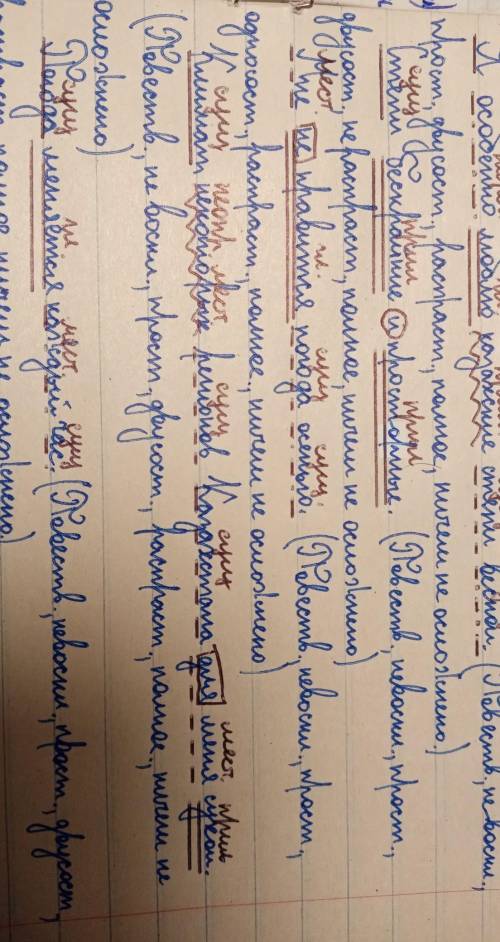 Я особенно люблю казахские степи весной. (Повеств., не восклиц.,
прост., двусост., распрост., полное, ничем не осложнено.)
сущ прил прил
Степи бескрайние и просторные. (Повеств., невоскл., прост.,
двусост., нераспрост., полное, ничем не осложнено)
мест. гл. сущ сущ.
Мне не нравится погода осенью. (Повеств., невоскл., прост.,
односост., распрост., полное, ничем не осложнено)
сущ неопр. мест сущ сущ мест. прил
Климат некоторых регионов Казахстана для меня суров.
(Повеств., не воскл., прост., двусост., распрост., полное, ничем не
осложнено)
сущ гл. мест. сущ
Погода меняется каждый час. (Повеств., невоскл., прост., двусост.,
полное, ничем не осложнено)